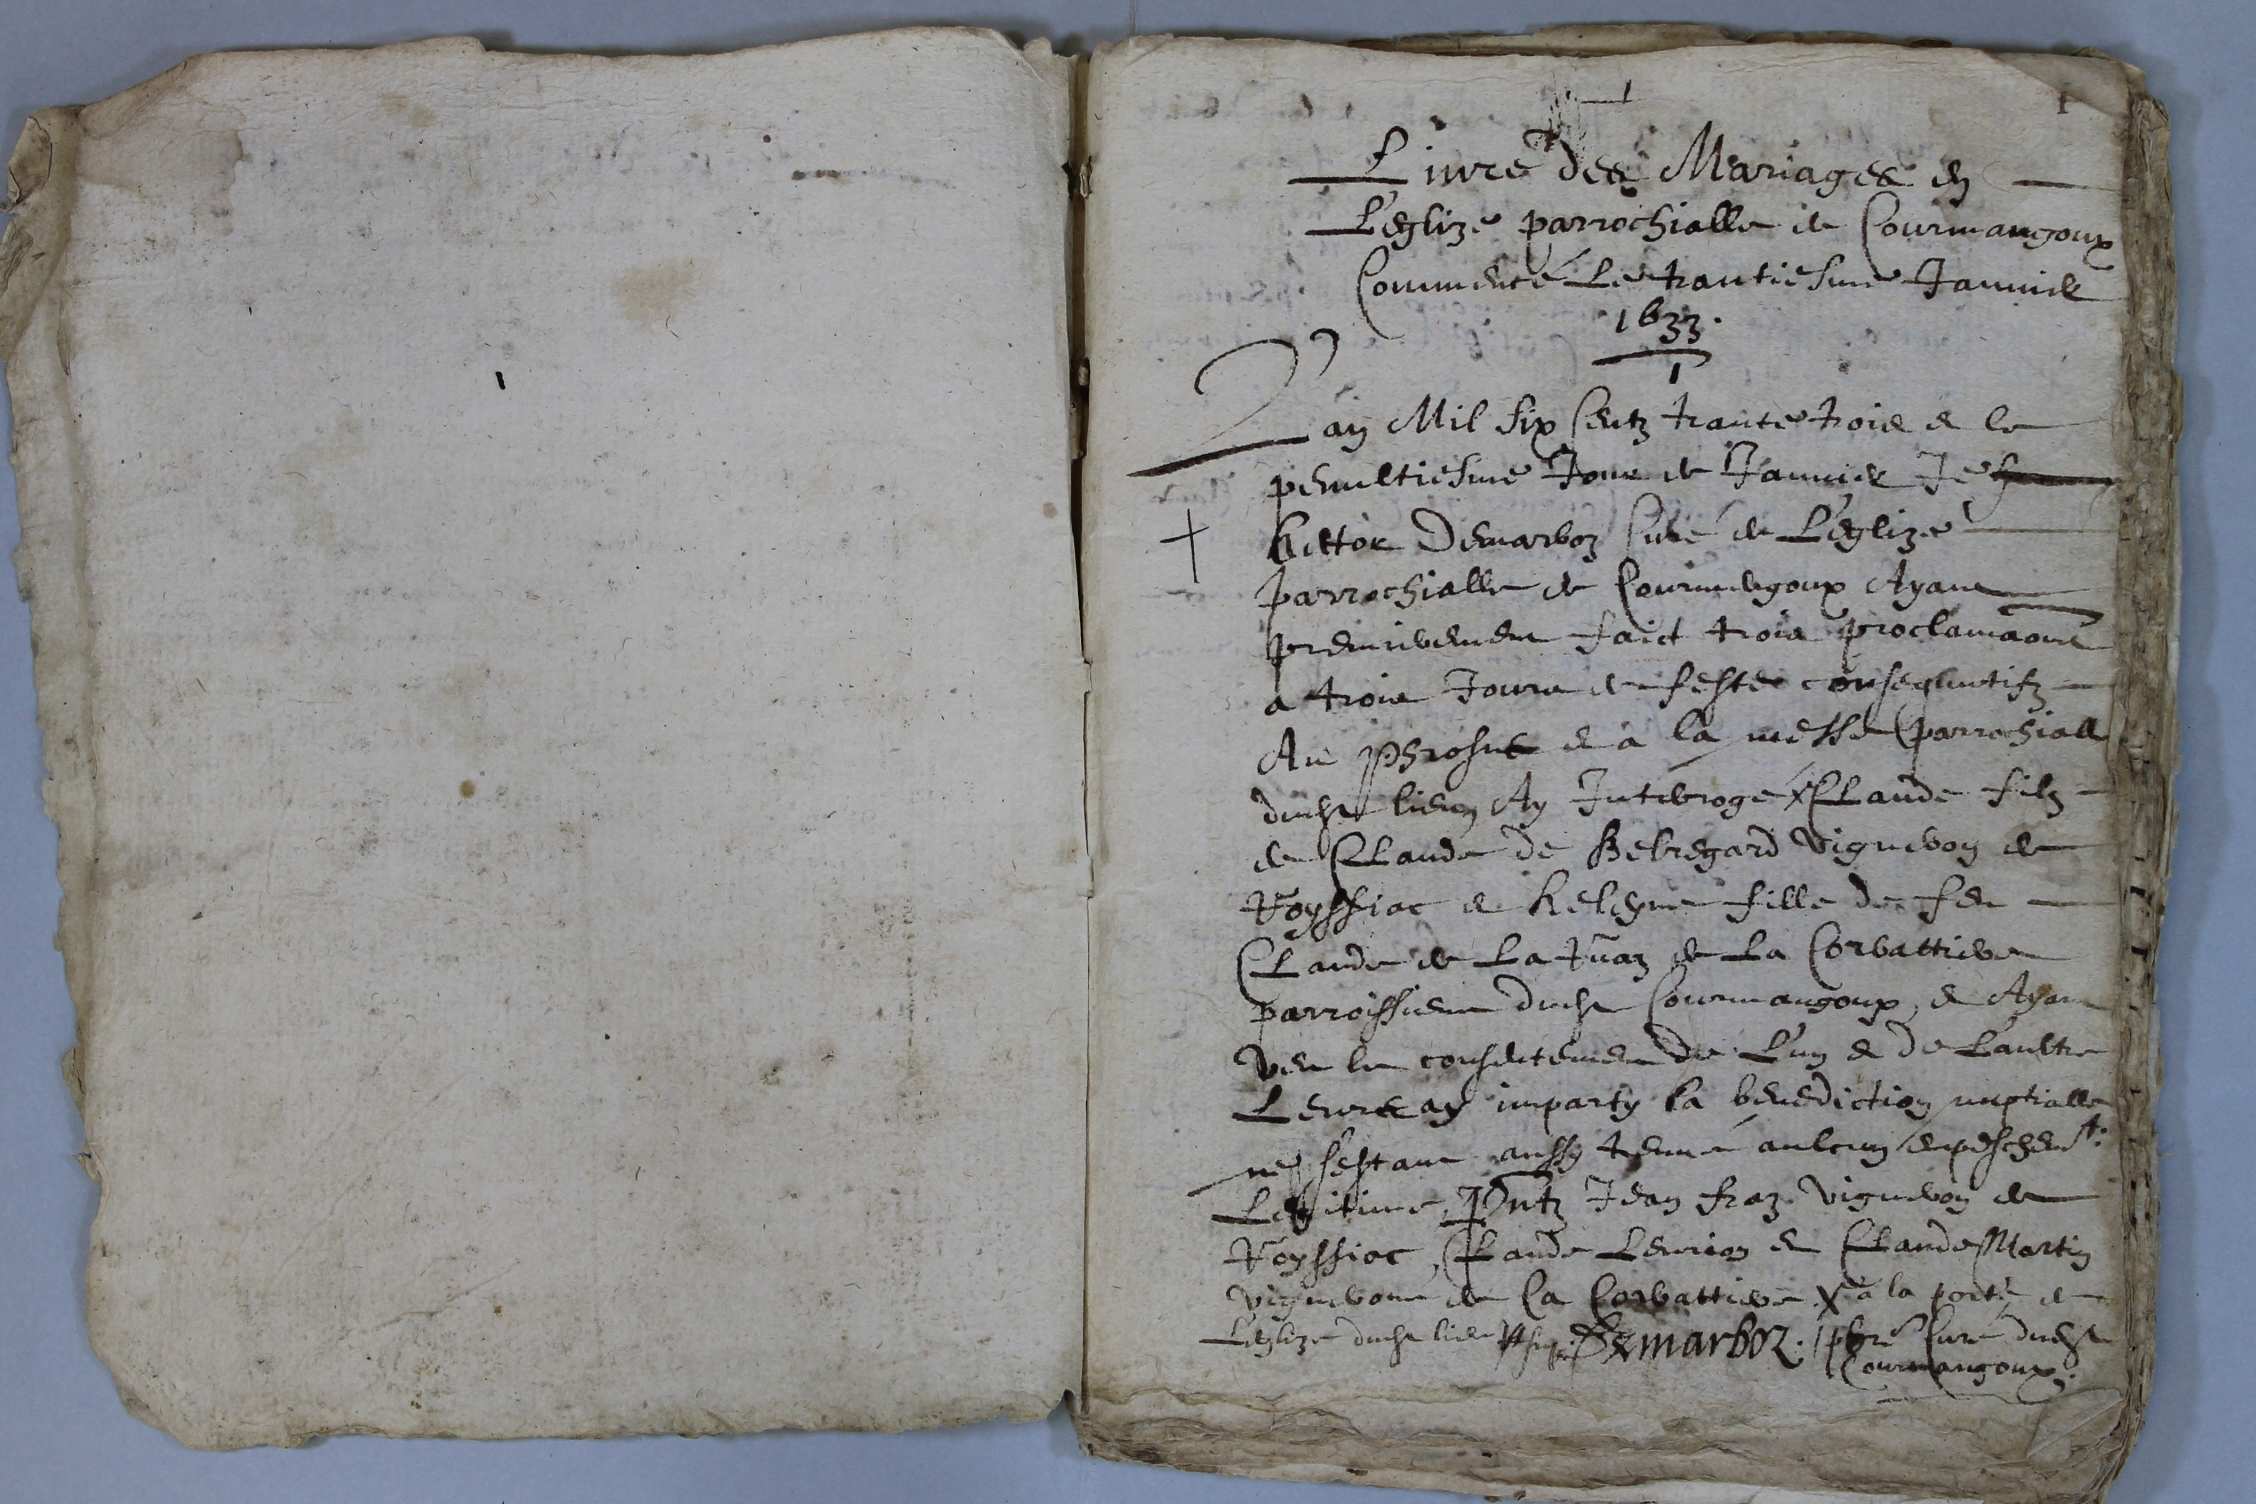 1
Livre des Mariages en
L'eglize parrochialle de Courmangoux
Commencé Le trantiesme Januier
1633.
L'an Mil six Centz trante trois & le
penultiesme Jour de Januier Je
hector Demarboz Curé de L'eglize
parrochialle de Courmengoux Ayant
premierement faict trois proclamaons
a trois Jours de festes consequutifz
Au Prosne & a la messe parrochiall
dudt lieu Ay Interrogé Claude filz
de Claude de Belregard vigneron de
Royssiac & heleyne fille de feu
Claude de La Tuaz de La Corbattiere
parroissiens dudt Courmangoux, & Ayant
veu le consentement de L'un & de L'aultre
Leurs ay imparty la benediction nuptialle
ne sestant aussy treuué aulcun empeschemt.
Legitime, Pntz Jean fraz vigneron de
Royssiac, Claude Leurion & Claude Martin
vignerons de La Corbattiere, & à la porte de
L'eglize dudt lieu Demarboz. pbre Curé dudt
Courmangoux.